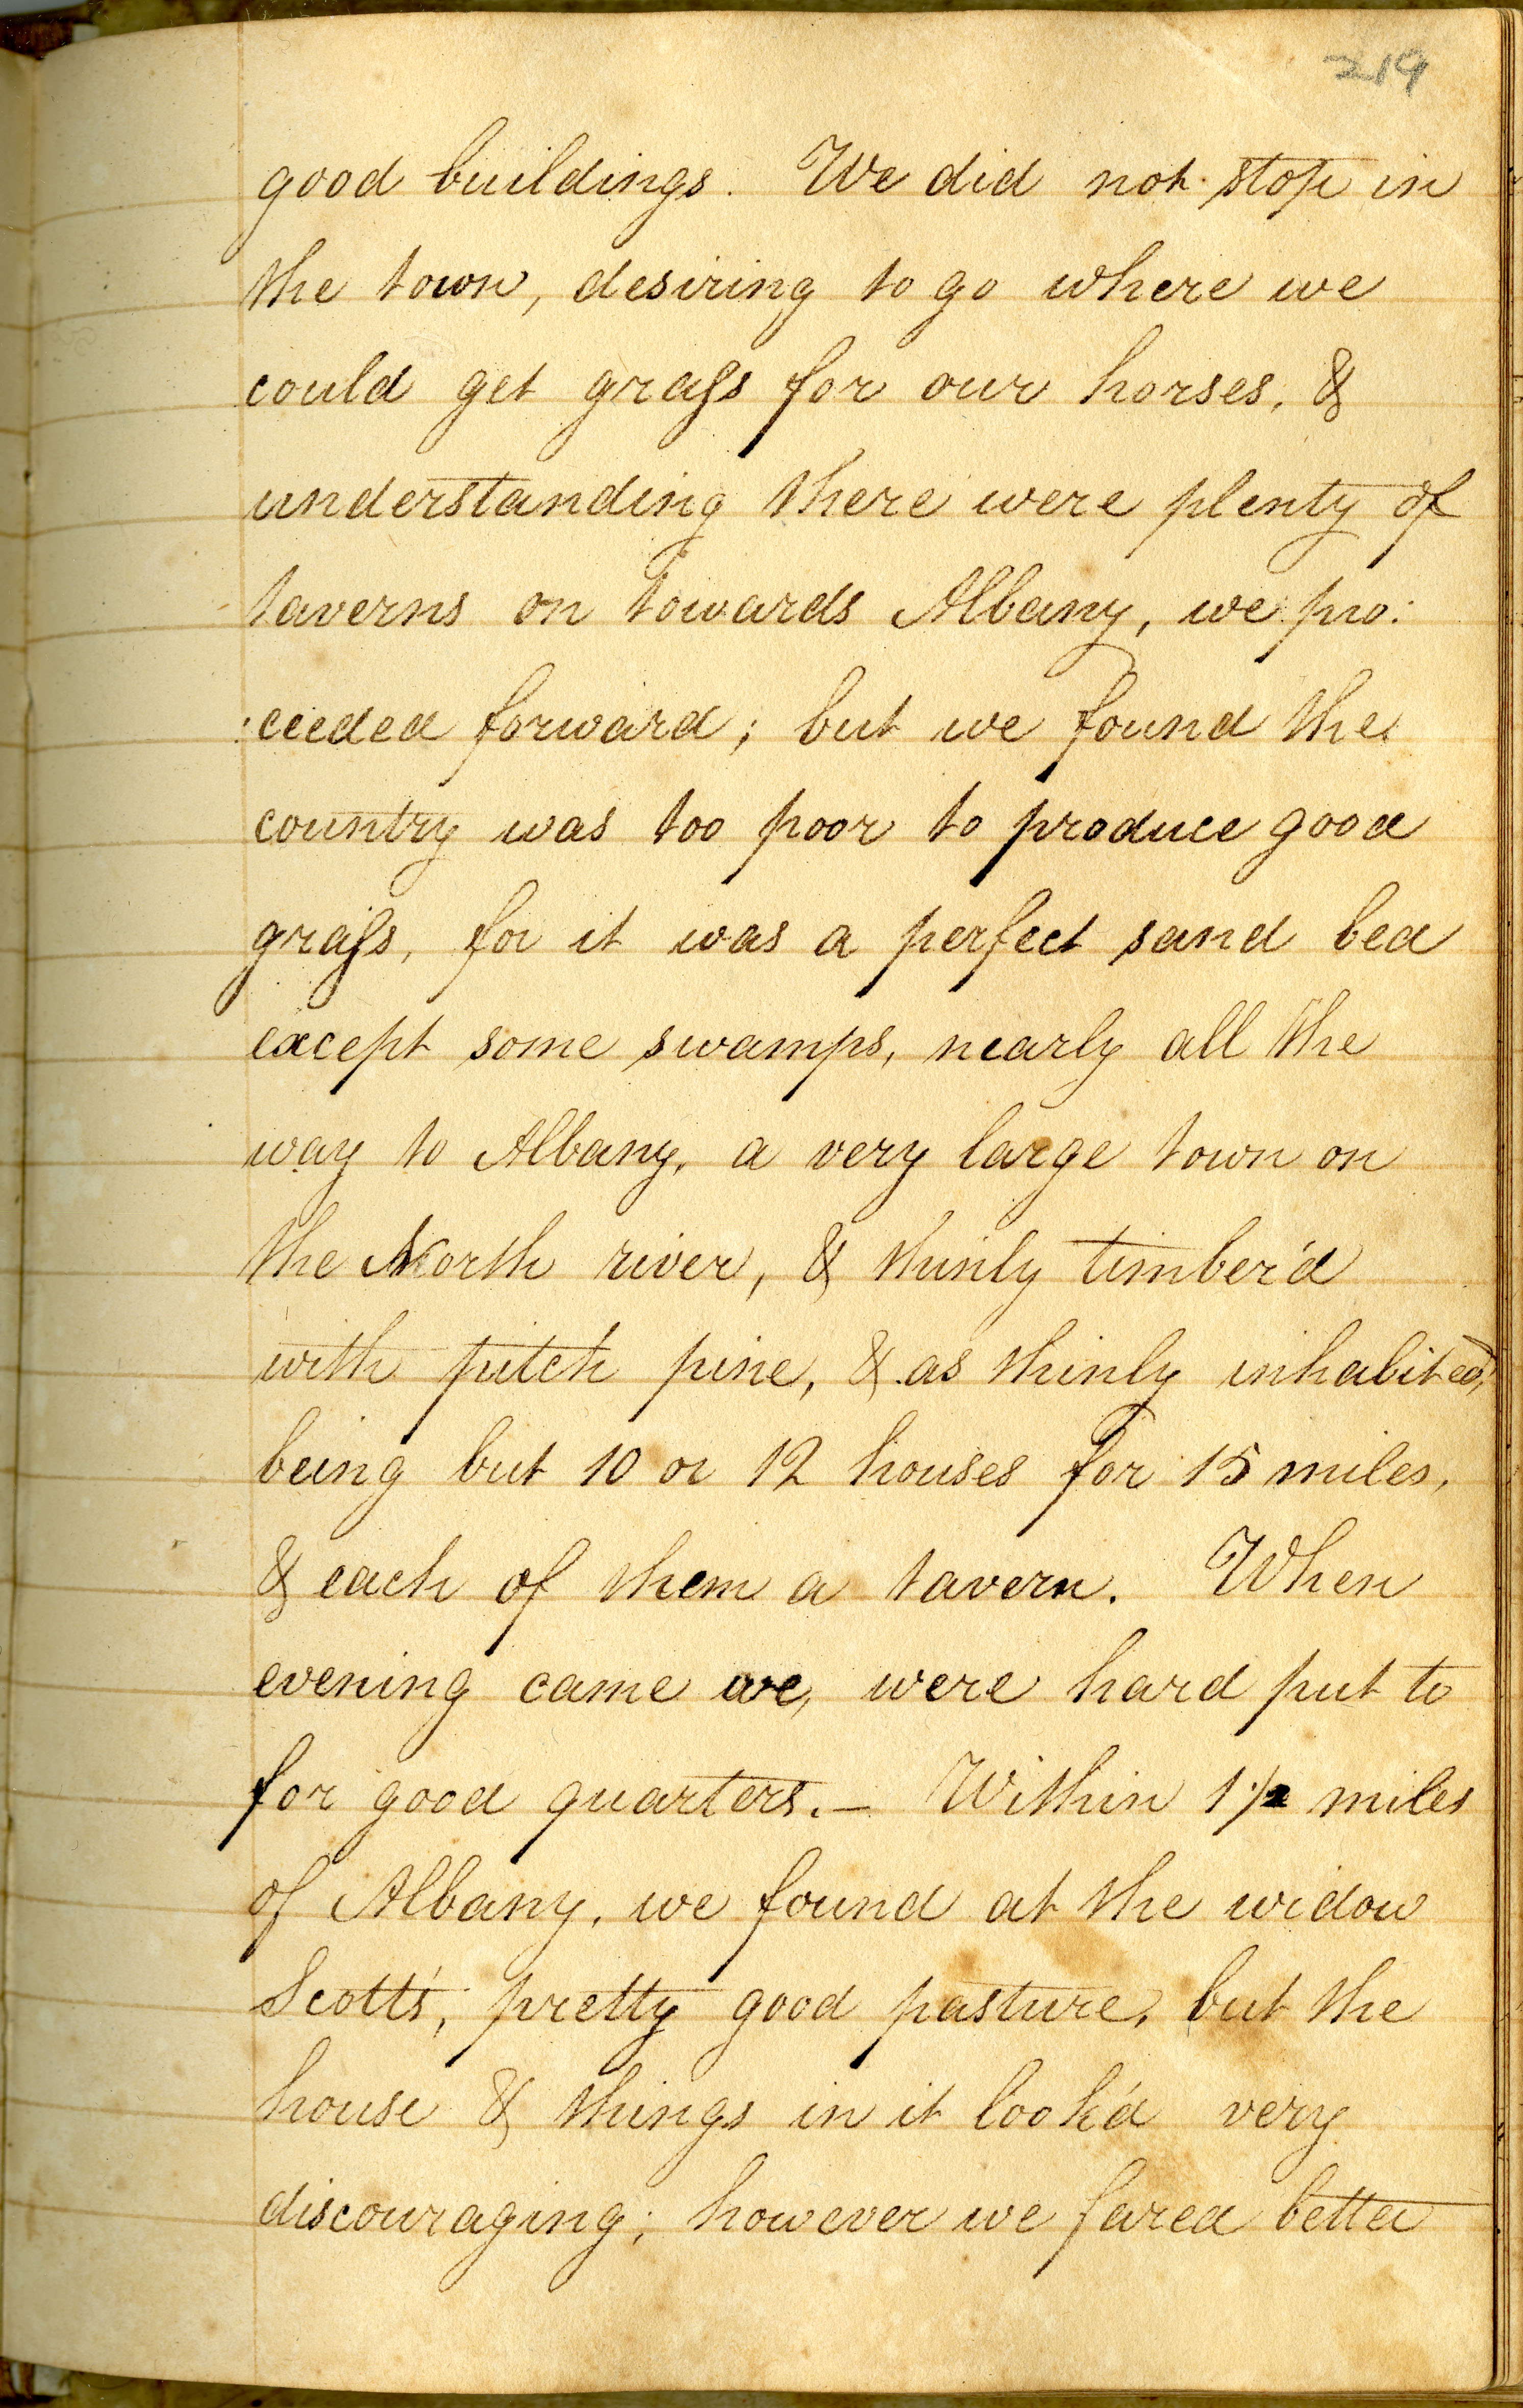 219
good buildings. We did not stop in
the town, desiring to go where we
could get grass for our horses, &
understanding there were plenty of
taverns on towards Albany, we pro:
:ceeded forward; but we found the
country was too poor to produce good
grass, for it was a perfect sand bed
except some swamps, nearly all the
way to Albany, a very large town on
the North river, & thinly timber'd
with pitch pine, & as thinly inhabited,
being but 10 or 12 houses for 15 miles,
& each of them a tavern. When
evening came we, were hard put to
for good quarters.— Within 1 1/2 miles
of Albany, we found at the widow
Scott's, pretty good pasture, but the
house & things in it look'd very
discouraging; however we fared better